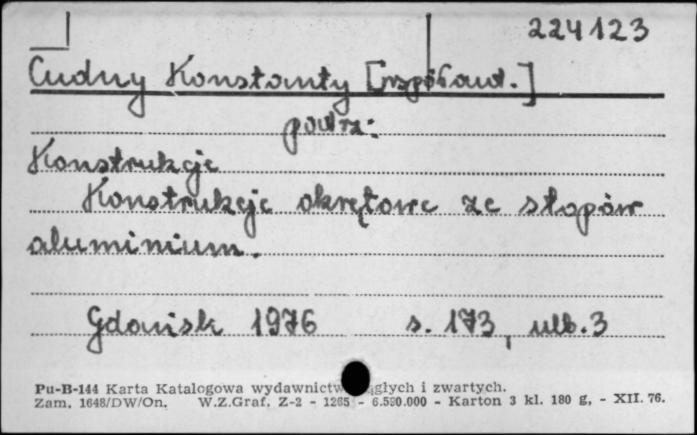 224123
Cudny Konstanty [współaut.]
patrz:
Konstrukcje
Konstrukcje okrętowe ze stopów
aluminium.
Gdańsk 1976 s. 173, nlb. 3
Pu-B-144 Karta Katalogowa wydawnictw ciągłych i zwartych.
Zam. 1648/DW/On. W.Z.Graf. Z-2 - 1265 - 6.500.000 - Karton 3 kl. 180 g. - XII. 76.